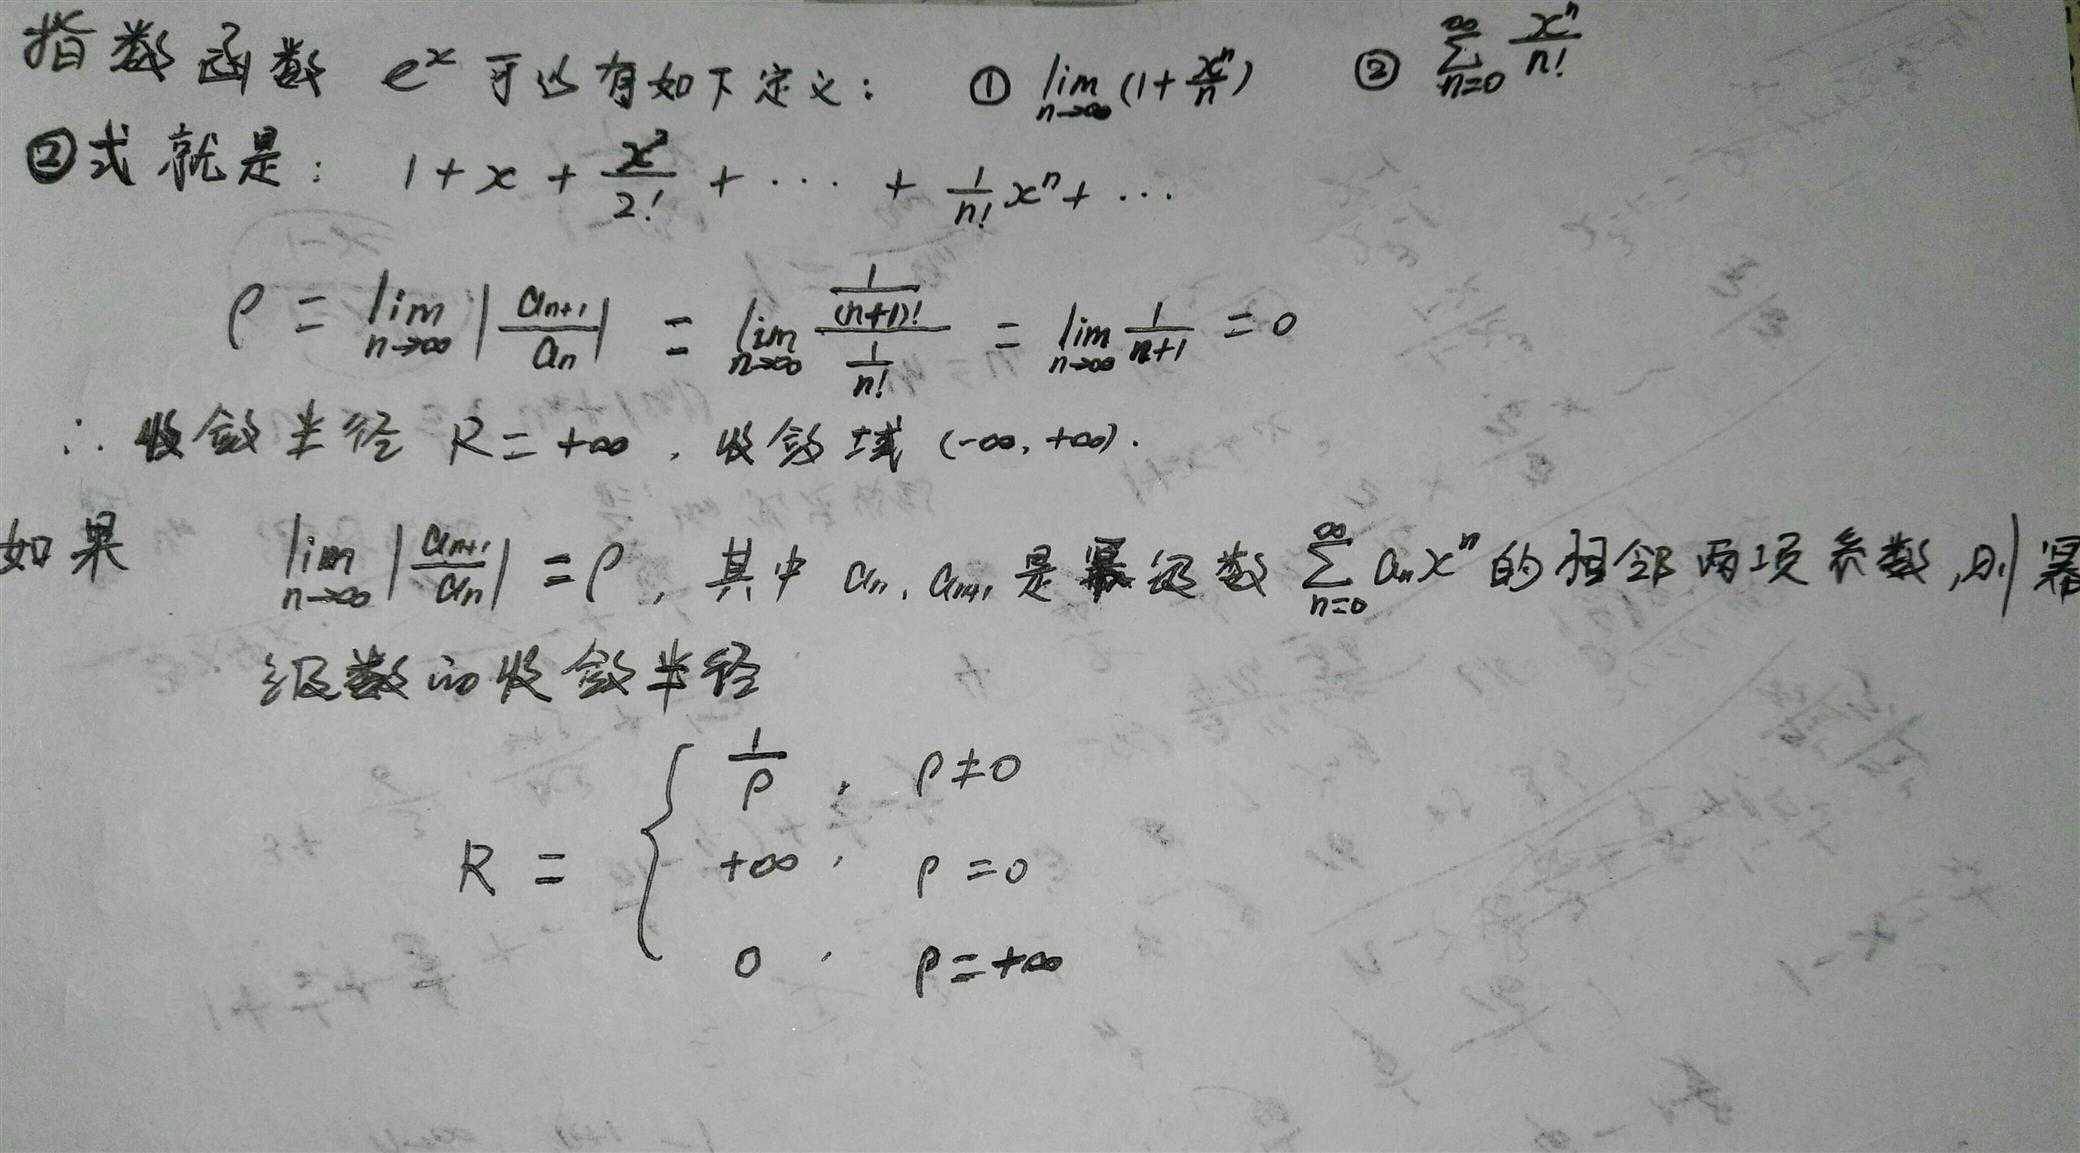 指数函数 e^x 可以有如下定义： ① lim_{n→∞} (1 + x^n/n) ② ∑_{n=0}^{∞} x^n/n!
②式就是： 1 + x + x^2/2! + ··· + 1/n! x^n + ···
ρ = lim_{n→∞} |a_{n+1}/a_n| = lim_{n→∞} (1/(n+1)!)/(1/n!) = lim_{n→∞} 1/(n+1) = 0
∴ 收敛半径 R = +∞, 收敛域 (-∞, +∞).
如果 lim_{n→∞} |a_{n+1}/a_n| = ρ, 其中 a_n, a_{n+1} 是幂级数 ∑_{n=0}^{∞} a_n x^n 的相邻两项系数, 则幂
级数的收敛半径
R = { 1/ρ, ρ≠0
+∞, ρ=0
0, ρ=+∞